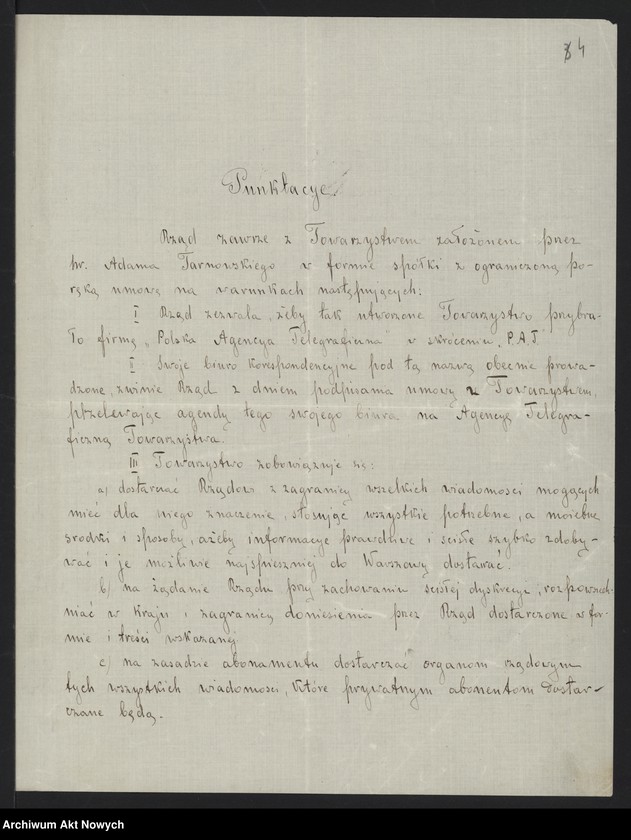 4
Punktacye
Rząd zawrze z Towarzystwem założonem przez
hr. Adama Tarnowskiego w formie spółki z ograniczoną po-
ręką umowę na warunkach następujących:
I Rząd zezwala, żeby tak utworzone Towarzystwo przybra-
ło firmę „Polska Agencya Telegraficzna" w skróceniu „P.A.T.
I Swoje biuro korespondencyjne pod tą nazwą obecnie prowa-
dzone, zwinie Rząd z dniem podpisania umowy z Towarzystwem,
przelewając agendy tego swojego biura na Agencyę Telegra-
ficzną Towarzystwa.
III Towarzystwo zobowiązuje się:
a/ dostarczać Rządowi z zagranicy wszelkich wiadomości mogących
mieć dla niego znaczenie, stosując wszystkie potrzebne, a możebne
środki i sposoby, ażeby informacye prawdziwe i ścisłe szybko zdoby-
wać i je możliwie najspieszniej do Warszawy dostawać.
b/ na żądanie Rządu przy zachowaniu ścisłej dyskrecyi, rozpowsze-
chniać w kraju i zagranicą doniesienia przez Rząd dostarczone w for-
mie i treści wskazanej
c/ na zasadzie abonamentu dostarczać organom rządowym
tych wszystkich wiadomości, które prywatnym abonentom dostar-
czane będą.
Archiwum Akt Nowych